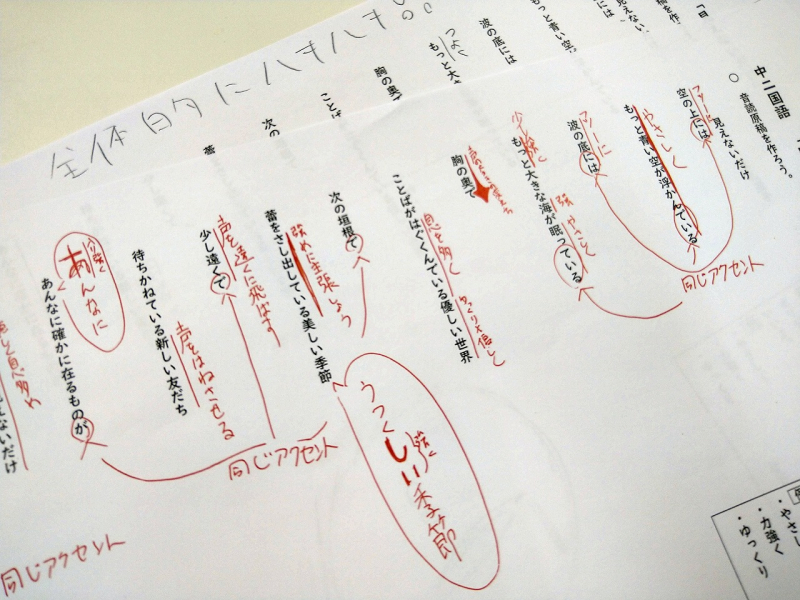 全体的にハキハキ
中二国語
○ 音読原稿を作ろう。
見えないだけ
空の上には
もっと青い空が浮かんでいる
波の底には
もっと大きな海が眠っている
胸の奥で
ことばがはぐくんでいる優しい世界
次の垣根で
蕾をさし出している美しい季節
少し遠くで
待ちかねている新しい友だち
あんなに確かに在るものが
えないだけ
やさしく
同じアクセント
少し強く
強
やさしく
息を多く
強めに主張しよう
うつくしい季節
強く
声を遠くに飛ばす
声をはねさせる
同じアクセント
あんなに
同じアクセント
胸の奥で
ことば
次の
蕾
もっと大き
波の底には
もっと青い空
見えない
・やさし
・力強く
・ゆっくり